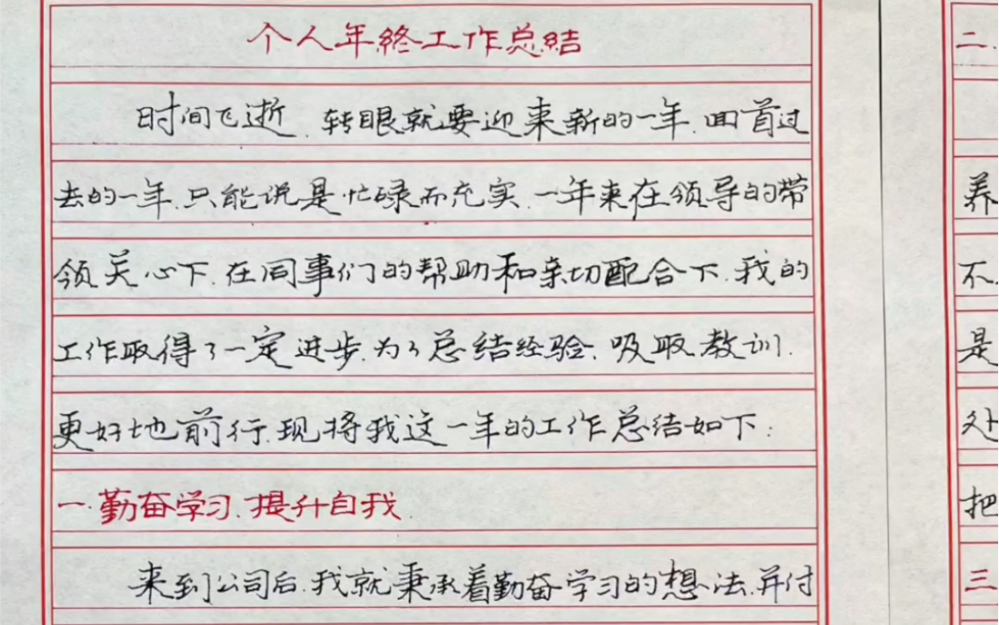 个人年终工作总结
时间飞逝.转眼就要迎来新的一年.回首过
去的一年.只能说是忙碌而充实.一年来在领导的带
领关心下.在同事们的帮助和亲切配合下.我的
工作取得了一定进步.为了总结经验.吸取教训.
更好地前行.现将我这一年的工作总结如下:
一.勤奋学习.提升自我
来到公司后.我就秉承着勤奋学习的想法.并付
二.
养
不
是
处
把
三